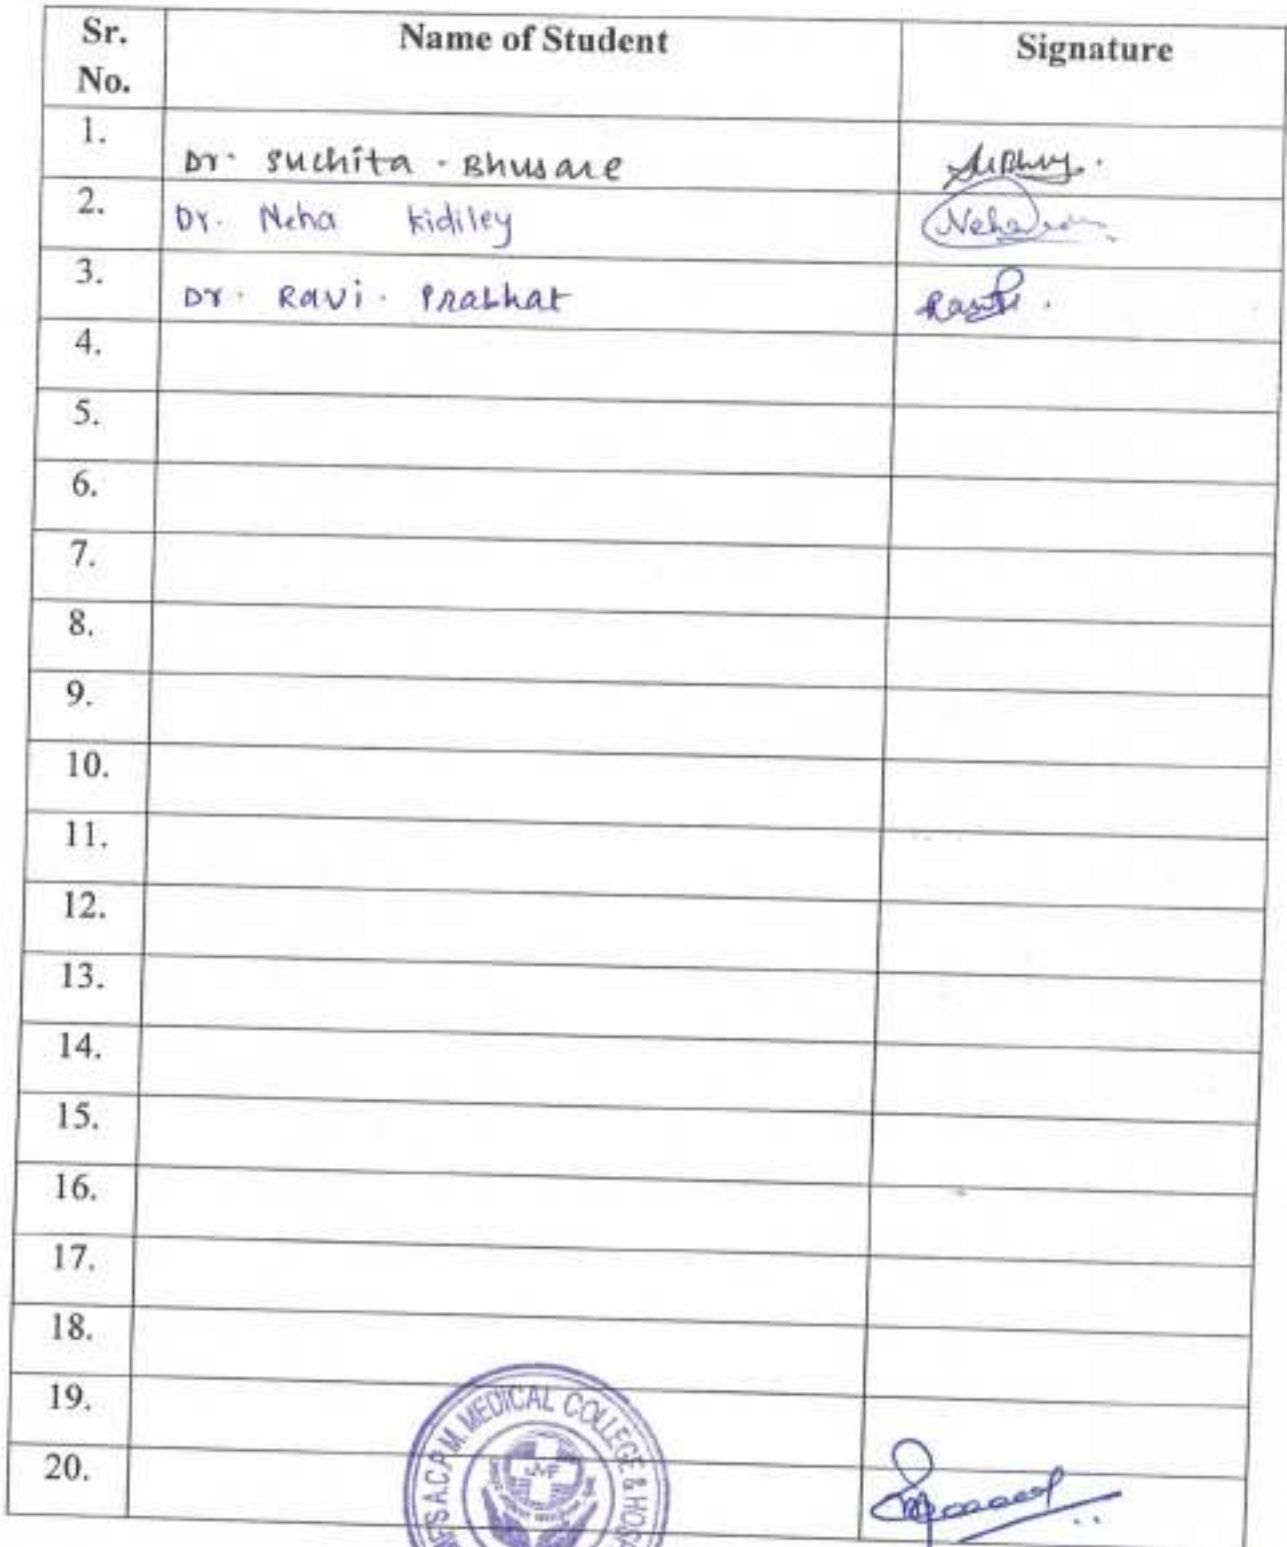 Sr. No. Name of Student Signature
1. Dr. Suchita . Bhusare
2. Dr. Neha Kidiley Neha
3. Dr. Ravi . Prabhat
4.
5.
6.
7.
8.
9.
10.
11.
12.
13.
14.
15.
16.
17.
18.
19.
20.
A.C.P.M. MEDICAL COLLEGE & HOS
JMF